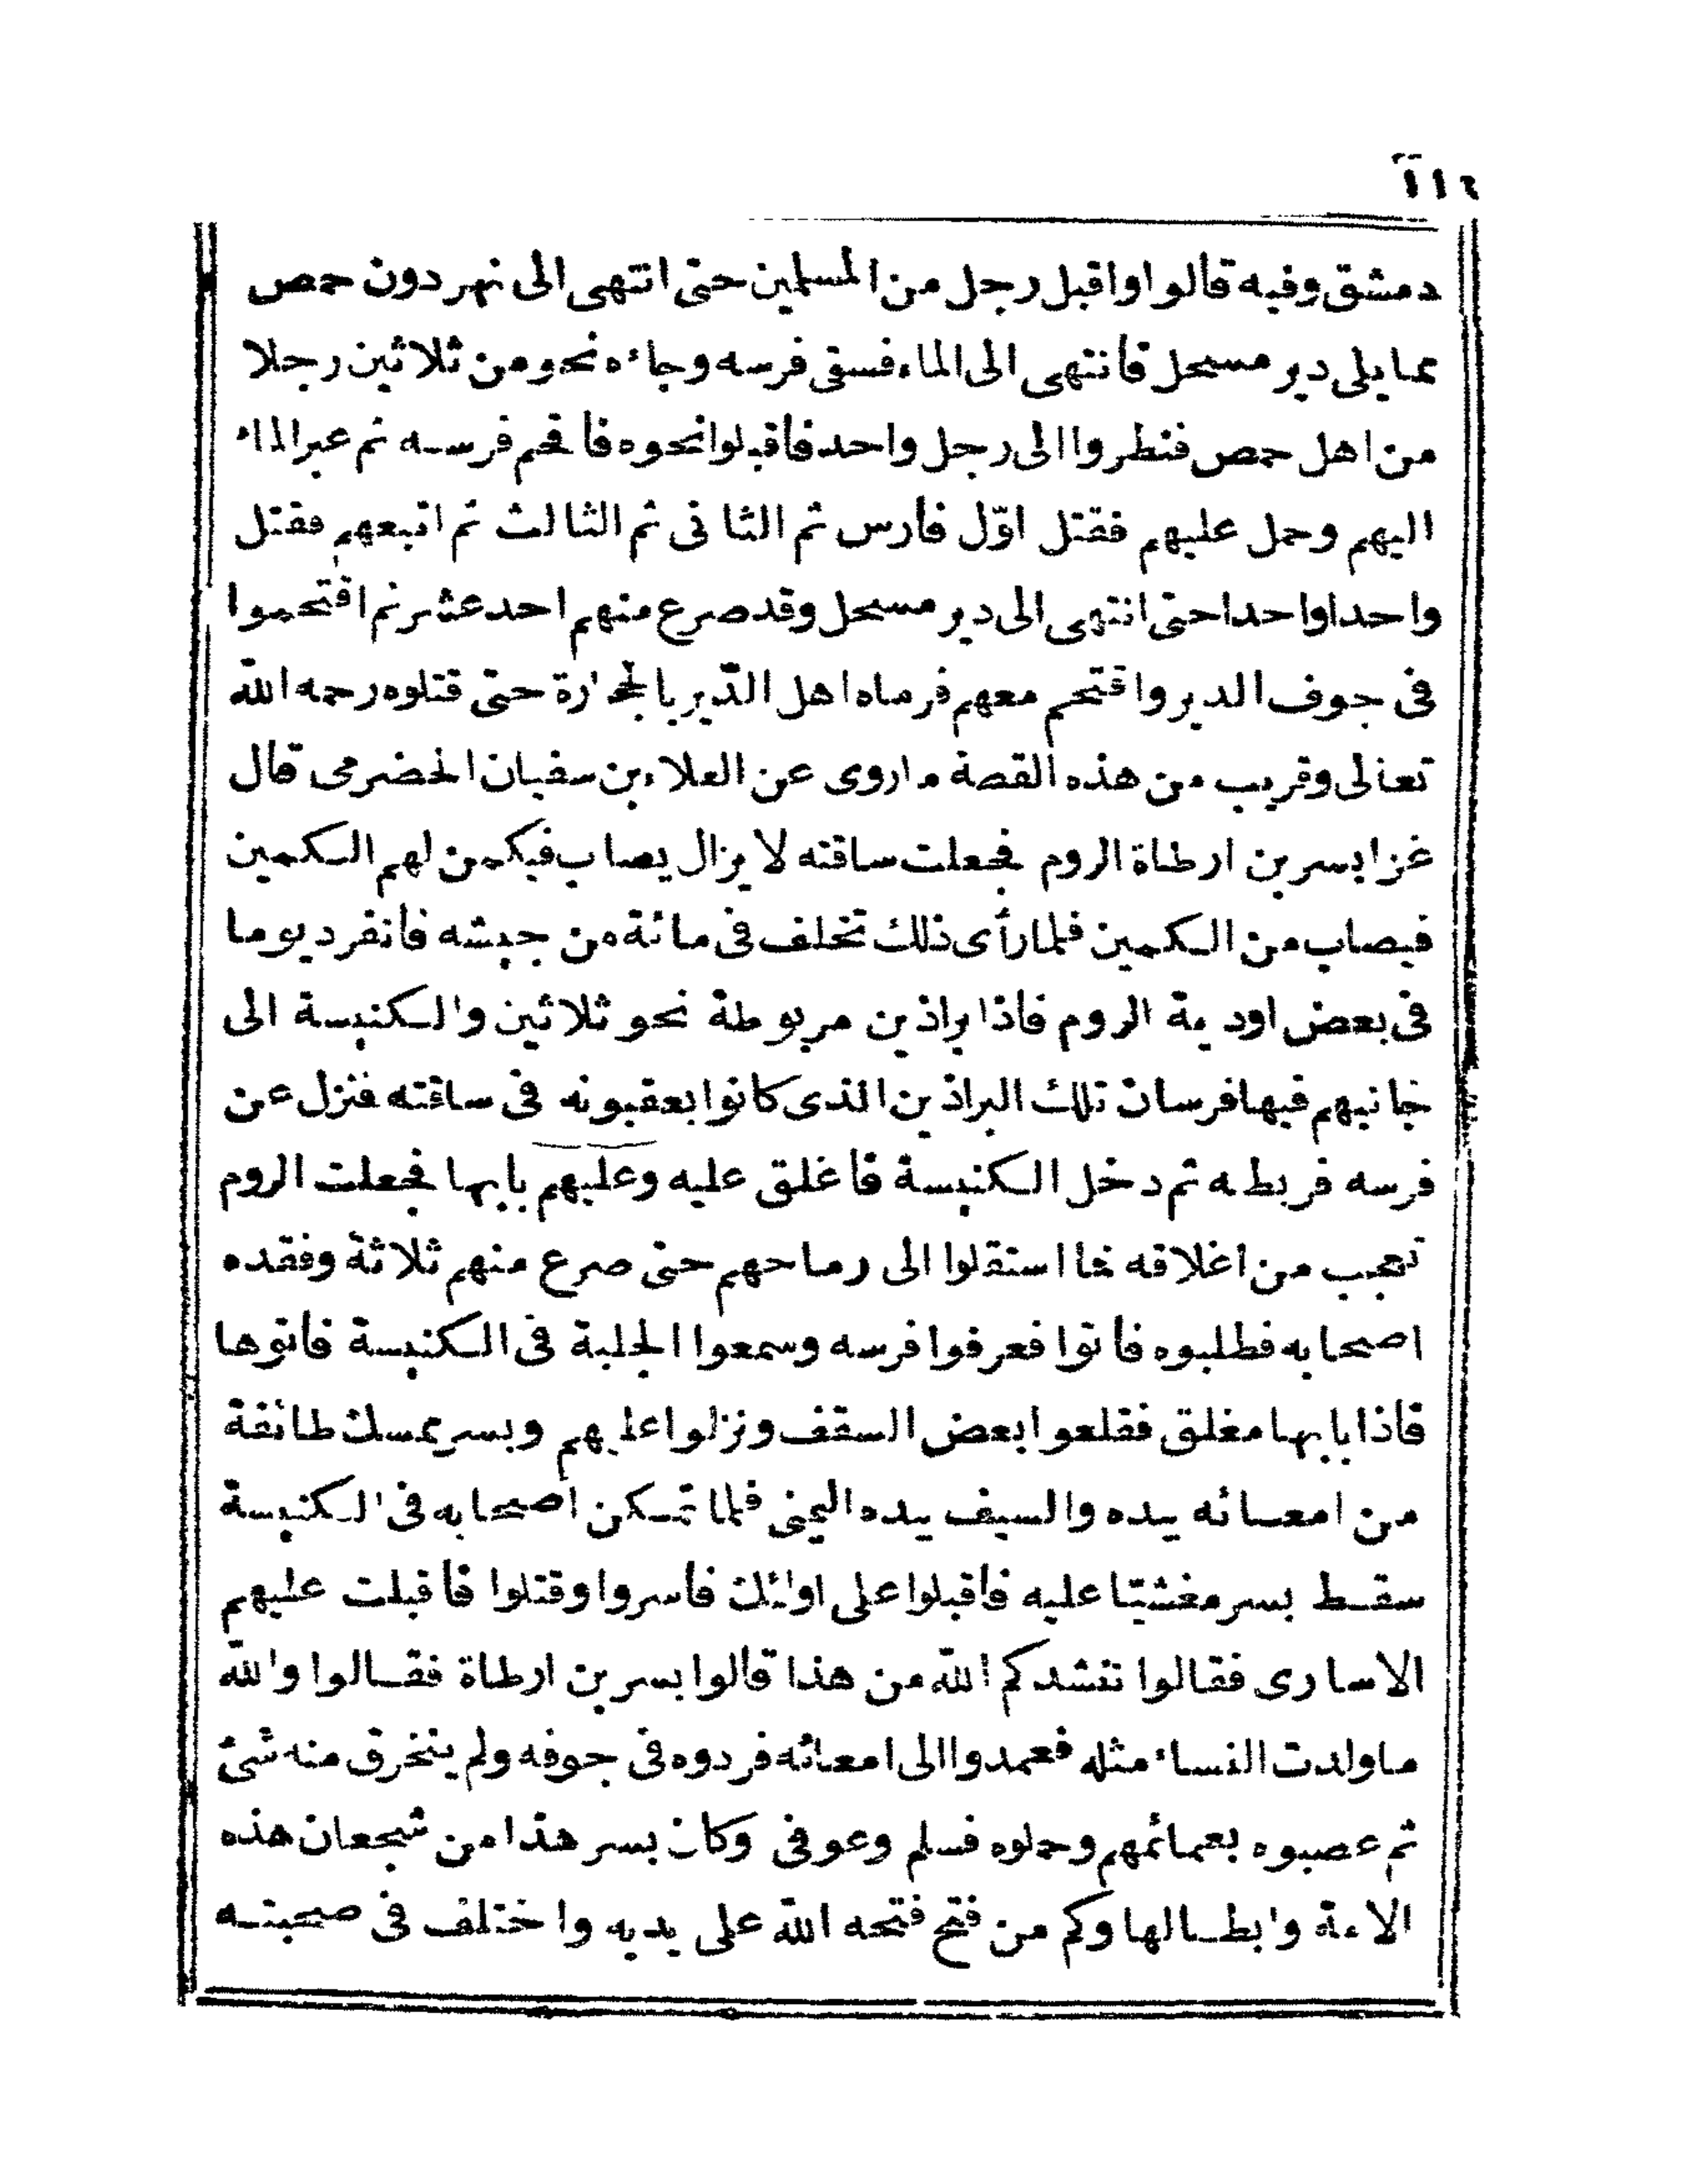 ١١٦
دمشق وفيه قالوا واقبل رجل من المسلمين حتى انتهى الى نهر دون حمص
مما يلى دير مسحل فانتهى الى الماء فسقى فرسه وجاءه نحو من ثلاثين رجلا
من اهل حمص فنظروا الى رجل واحد فاقبلوا نحوه فاقحم فرسه ثم عبر الماء
اليهم وحمل عليهم فقتل اوّل فارس ثم الثانى ثم الثالث ثم اتبعهم فقتل
واحدا واحدا حتى انتهى الى دير مسحل وقد صرع منهم احد عشر ثم اقتحموا
فى جوف الدير واقتحم معهم فرماه اهل الدّير بالحجارة حتى قتلوه رحمه الله
تعالى وقريب من هذه القصة ما روى عن العلاء بن سفيان الحضرمى قال
غزا بسر بن ارطاة الروم فجعلت ساقته لا يزال يصاب فيكمن لهم الكمين
فيصاب من الكمين فلما رأى ذلك تخلف فى مائة من جيشه فانفرد يوما
فى بعض اودية الروم فاذا براذين مربوطة نحو ثلاثين والكنيسة الى
جانبهم فيها فرسان تلك البراذين الذى كانوا يعقبونه فى ساقته فنزل عن
فرسه فربطه ثم دخل الكنيسة فاغلق عليه وعليهم بابها فجعلت الروم
تعجب من اغلاقه فما استقلوا الى رماحهم حتى صرع منهم ثلاثة وفقده
اصحابه فطلبوه فاتوا فعرفوا فرسه وسمعوا الجلبة فى الكنيسة فاتوها
فاذا بابها مغلق فقلعوا بعض السقف ونزلوا عليهم وبسر ممسك طائفة
من امعائه بيده والسيف بيده اليمنى فلما تمكن اصحابه فى الكنيسة
سقط بسر مغشيّا عليه فاقبلوا على اولئك فاسروا وقتلوا فاقبلت عليهم
الاسارى فقالوا ننشدكم الله من هذا قالوا بسر بن ارطاة فقالوا والله
ما ولدت النساء مثله فعمدوا الى امعائه فردوه فى جوفه ولم ينخرق منه شئ
ثم عصبوه بعمائمهم وحملوه فسلم وعوفى وكان بسر هذا من شجعان هذه
الامة وابطالها وكم من فتح فتحه الله على يديه واختلف فى صحبته